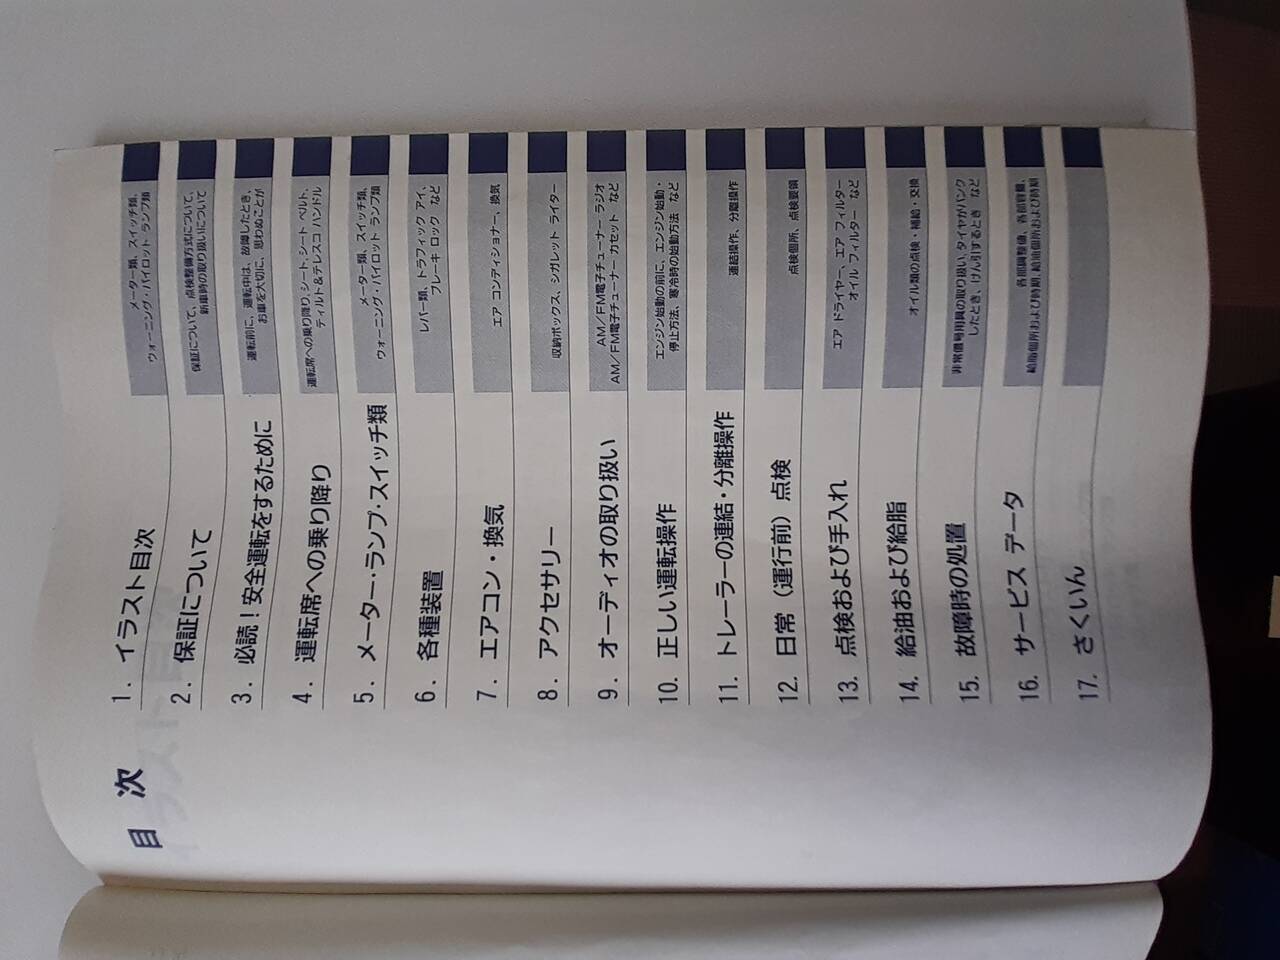 目 次
1. イラスト目次
メーター類、スイッチ類、
ウォーニング・パイロット ランプ類
2. 保証について
保証について、点検整備方式について、
新車時の取り扱いについて
3. 必読！安全運転をするために
運転前に、運転中は、故障したとき、
お車を大切に、思わぬことが
4. 運転席への乗り降り
運転席への乗り降り、シート、シート ベルト、
ティルト&テレスコ ハンドル
5. メーター・ランプ・スイッチ類
メーター類、スイッチ類、
ウォーニング・パイロット ランプ類
6. 各種装置
レバー類、トラフィック アイ、
ブレーキ ロック など
7. エアコン・換気
エア コンディショナー、換気
8. アクセサリー
収納ボックス、シガレット ライター
9. オーディオの取り扱い
AM／FM電子チューナー ラジオ
AM／FM電子チューナー カセット など
10. 正しい運転操作
エンジン始動の前に、エンジン始動・
停止方法、寒冷時の始動方法 など
11. トレーラーの連結・分離操作
連結操作、分離操作
12. 日常（運行前）点検
点検個所、点検要領
13. 点検および手入れ
エア ドライヤー、エア フィルター
オイル フィルター など
14. 給油および給脂
オイル類の点検・補給・交換
15. 故障時の処置
非常信号用具の取り扱い、タイヤがパンク
したとき、けん引するとき など
16. サービス データ
各部調整値、各部容量、
給脂個所および時期、給油個所および時期
17. さくいん